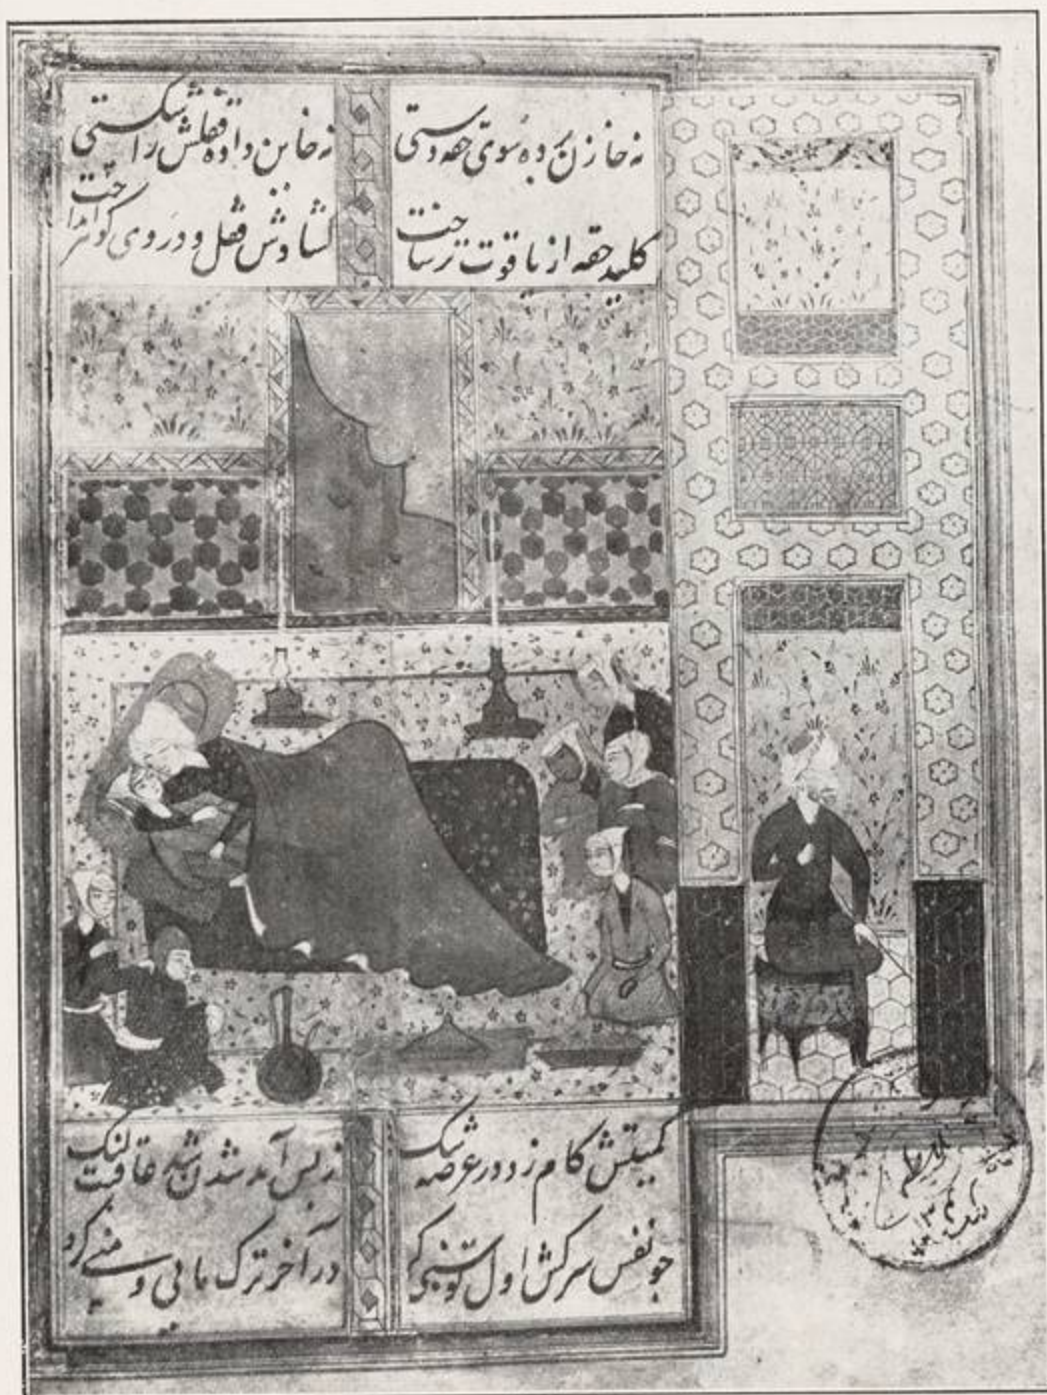 نه خازن برده سوی حقه دستی نه خاین داده قفلش را شکستی
کلید حقه از یاقوت تر ساخت کشادش قفل و در وی گوهر انداخت
کمیتش کام زد در عرصه تنک ز بس آمد شدن شد عاقبت لنک
چو نفس سرکش اول توسنی کرد در آخر ترک مایی و منی کرد